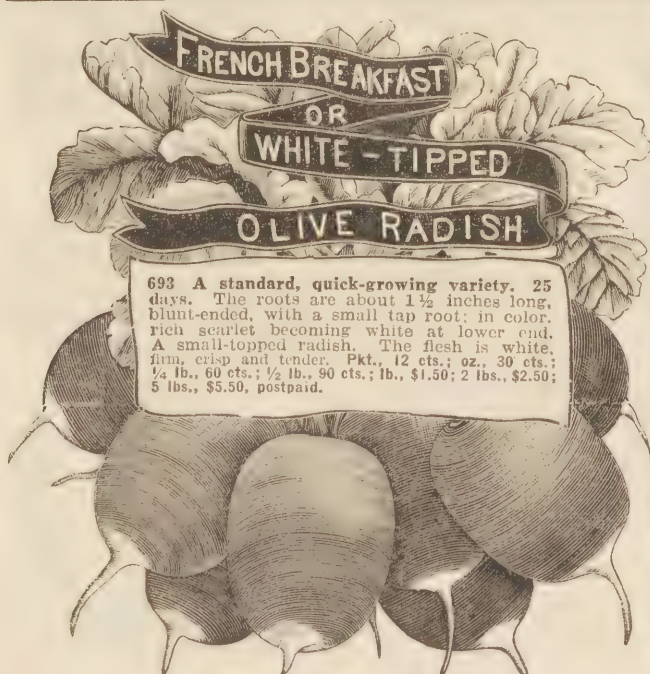 FRENCH BREAKFAST
OR
WHITE-TIPPED
OLIVE RADISH
693 A standard, quick-growing variety. 25
days. The roots are about 1½ inches long,
blunt-ended, with a small tap root; in color,
rich scarlet becoming white at lower end.
A small-topped radish. The flesh is white,
firm, crisp and tender. Pkt., 12 cts.; oz., 30 cts.;
¼ lb., 60 cts.; ½ lb., 90 cts.; lb., $1.50; 2 lbs., $2.50;
5 lbs., $5.50, postpaid.